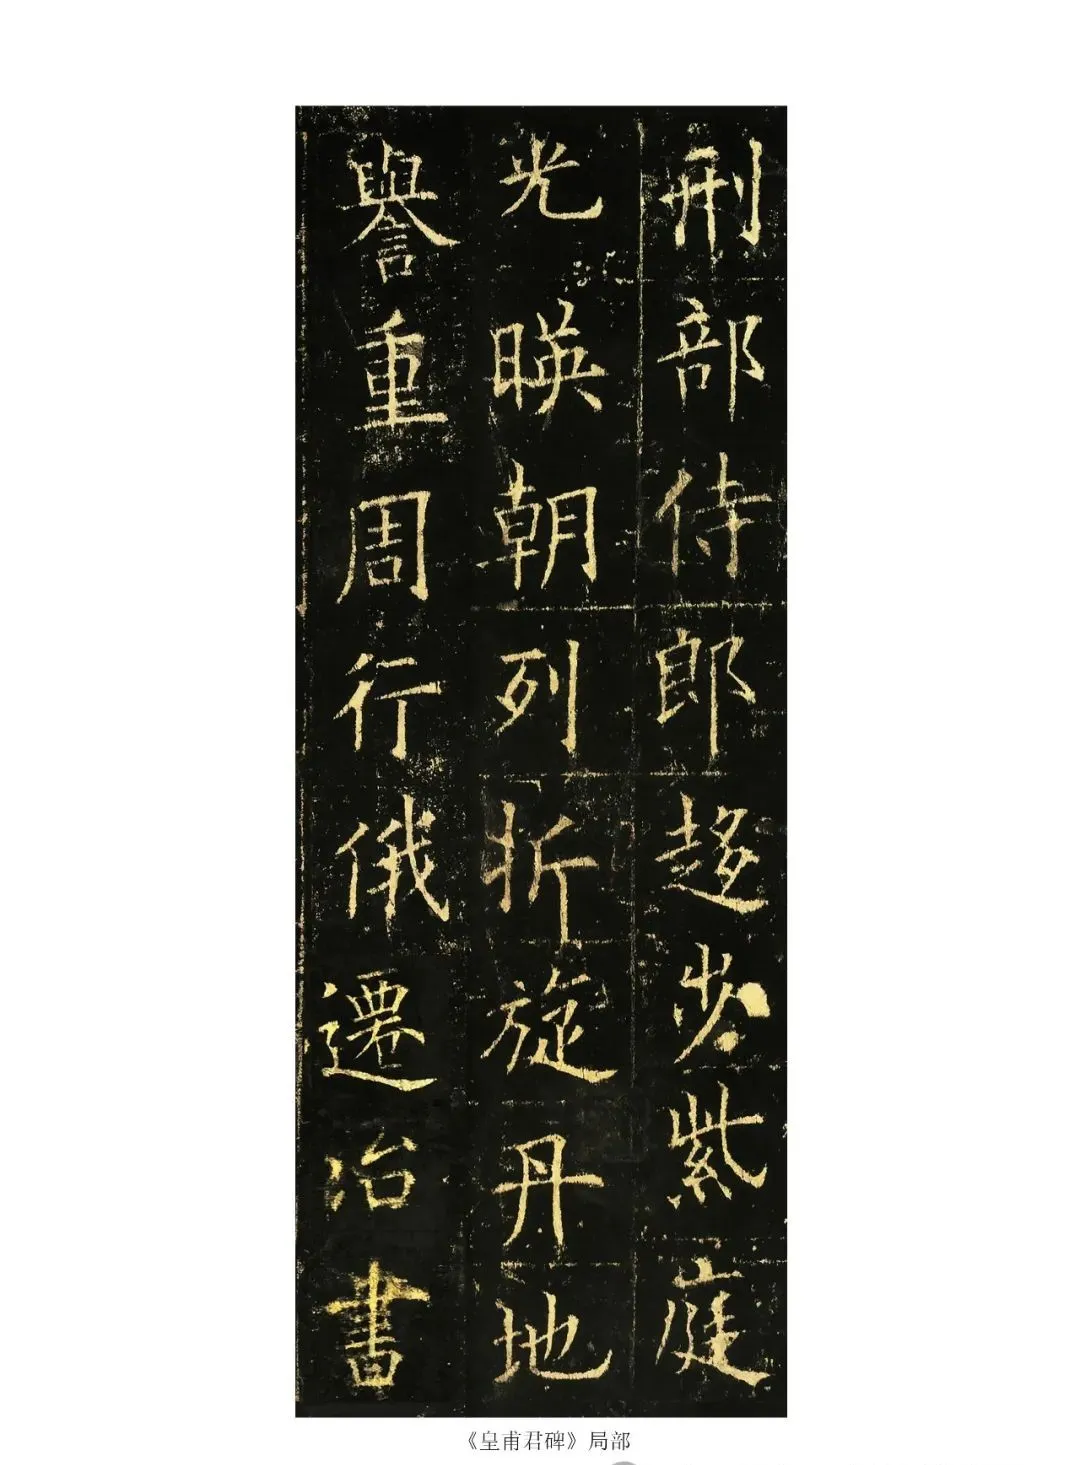 刑部侍郎趍步紫庭
光暎朝列折旋丹地
譽重周行俄遷治書
《皇甫君碑》局部